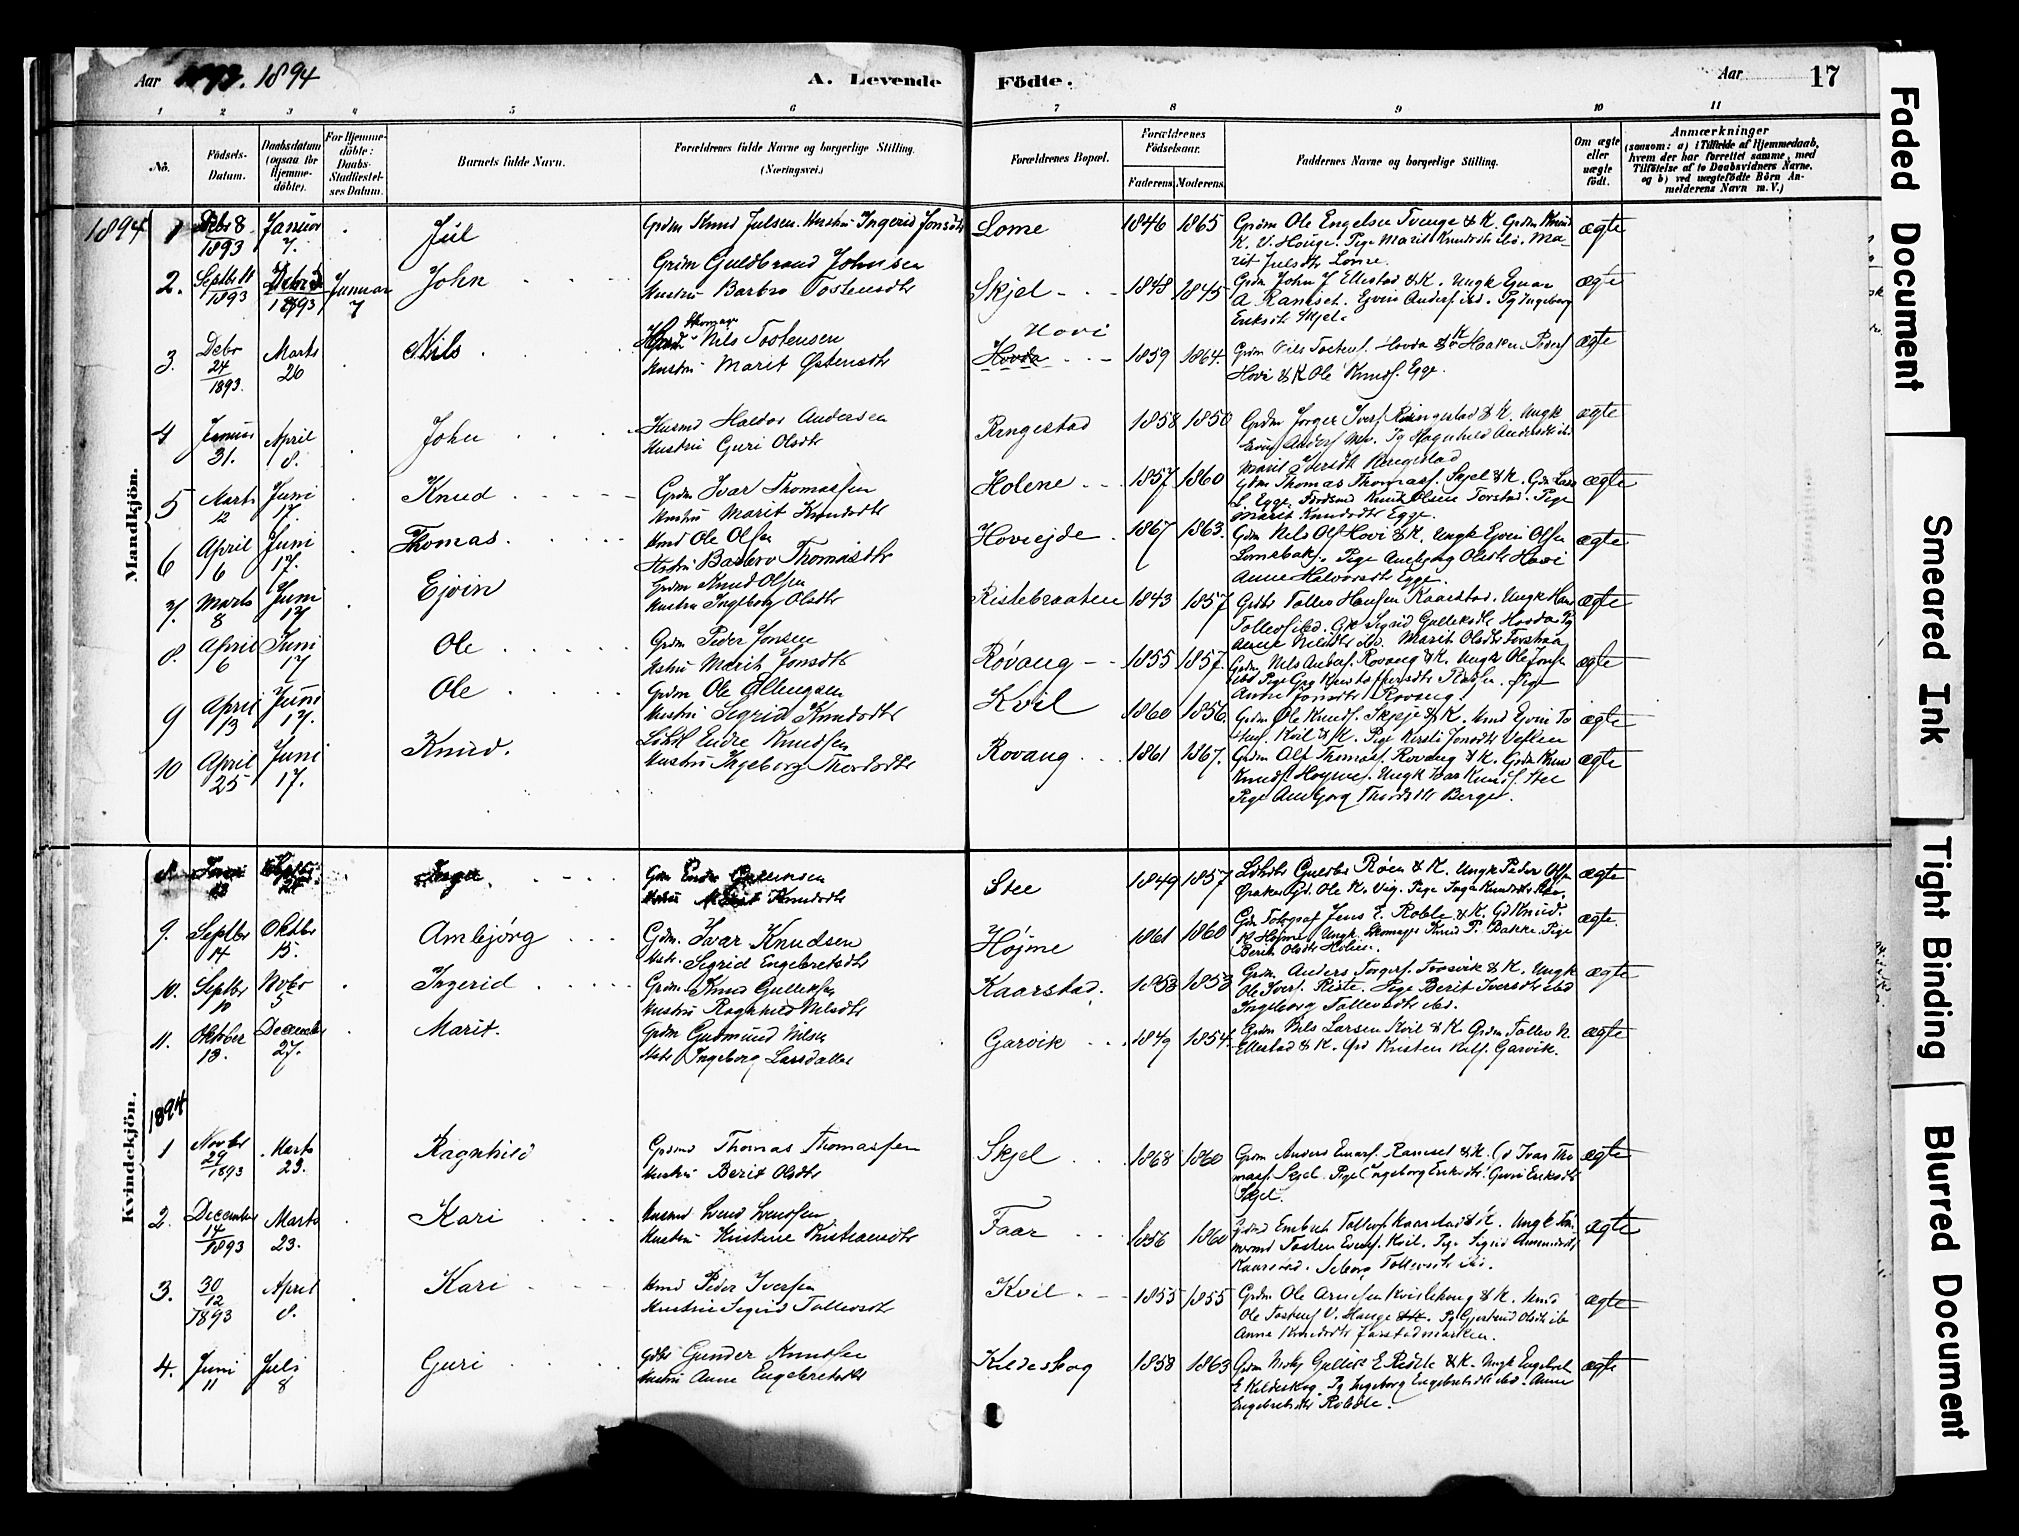 Aar 1893. 1894 A. Levende Födte. Aar 17
1 2 3 4 5 6 7 8 9 10 11
No. Födsels-Datum. Daabsdatum (ogsaa for Hjemme-döbte). For Hjemme-döbte: Daabs-Stadfæstel-ses Datum. Barnets fulde Navn. Forældrenes fulde Navne og borgerlige Stilling. (Næringsvei.) Forældrenes Bopæl. Forældrenes Födselsaar. Faderens Moderens Faddernes Navne og borgerlige Stilling. Om ægte eller uægte födt. Anmærkninger (saasom: a) i Tilfælde af Hjemmedaab, hvem der har forrettet samme, med Tilföielse af to Daabsvidners Navne, og b) ved uægtefödte Börn An-melderens Navn m. V.)
Mandkjön.
1894 1 Debr 8 1893 Januar 7. Jul Grdm Knud Julsen Hustru Ingerid Jonsdtr Lome 1846 1865 Grdm Ole Engelsen Tvenge & K. Grdm Knud
K. V. Hauge. Pige Marit Knudsdtr ibd. Ma-
rit Julsdtr Lome. ægte
2. Septbr 11 1893 Debr 1893 Januar 7 John Grdm Guldbrand Johnsen
Hustru Barbro Tostensdtr Skjel 1848 1845 Grdm John J Ellestad & K. Ungk Einar
A Ramset. Ejvin Anders. ibd. Pg Ingeborg
Eriksdtr Skjel. ægte
3. Debr 24 1893. Marts 26 Nils Skomager Nils Tostensen
Hustru Marit Østensdtr Hovi Hovda 1859 1864. Grdm Nils Tostens. Hovda & K Haaken Peders
Hovi & K Ole Knuds. Egge. ægte
4 Januar 31. April 8. John Husmd Haldor Andersen
Hustru Guri Olsdtr Ringestad 1858 1850 Grdm Jørger Ivers. Ringestad & K. Ungk
Pg Ragnhild Andersdtr ibd.
Marit Iversdtr Ringestad ægte
5 Marts 12 Juni 17. Knud Grdm Ivar Thomassen
Hustru Marit Knudsdtr Holene 1857 1860 Grdm Thomas Thomass. Skjel & K. Gdm Lars
L. Egge. Knud Olsen Forstad. Pige
Marit Knudsdtr Egge. ægte
6 April 6 Juni 17. Thomas Hmd Ole Olsen
Hustru Barbro Thomasdtr Hoviejde 1867 1863. Grdm Nils Ols Hovi & K. Ungk Ejvin Olsen
Lomebak. Pige Ambjørg Olsdtr Hovi
Anne Halvorsdtr Egge. ægte
7. Marts 8 Juni 17 Ejvin Grdm Knud Olsen
Hustru Ingeborg Olsdtr Ristebraaten 1843 1857 Grdbr Tollev Hansen Kaarstad. Ungk Hans
Tollevs ibd. Gk Sigrid Gulleksdtr Hovda Pg
Anne Nilsdtr ibd. Marit Olsdtr ægte
8. April 6 Juni 17 Ole Grdm Peder Jonsen
Hstru Marit Jonsdtr Røvang 1855 1857. Grdm Nils Anders. Røvang & K. Ungk Ole Jons
ibd Pige
Anne Jonsdtr Røvang. ægte
9 April 13 Juni 17. Ole Grdm Ole Ellingsen
Hustru Sigrid Knudsdtr Kvil 1860 1856. Grdm Ole Knuds. Skjeje & K. Hmd Ejvin To
Kvil & K. Pige Kirsti Jonsdtr ægte
10 April 25 Juni 17. Knud. Endre Knudsen
Hustru Ingeborg Thordsdtr Rovang 1861 1867. Grdm Alf Thomass. Rovang & K. Grdm Knud
Knuds. Høyme. Ungk Ivar Knuds. Stee
Pige Ambjørg Thordsdtr Berge. ægte
Kvindekjön.
8. Juni 18 Septbr Inga. Gdm Endre
Hustru Marit Knudsdtr Stee 1849 1857 Guldbr Røen & K. Ungk Peder Ols
Ole K. Vig. Pige Inga Knudsdtr Stee, ægte
9. Septbr 14 Oktbr 15. Ambjørg Grdm. Ivar Knudsen
Hstr. Sigrid Engebretsdtr Højme 1861 1860 Gdm Fotograf Jens E. Roble & K. Gd Knud.
K Højme. Ungk. Skomager Knud P. Bakke. Pige
Berit Olsdtr Holien. ægte.
10. Septbr 10 Novbr 5 Ingerid Grdm. Knud Gulleksen
Hustru Ragnhild Nilsdtr Kaarstad. 1853 1853 Grdm. Anders Torgers. Forsvik & K. Ungk
Ole Ivers. Riste. Pige Berit Iversdtr ibd
Ingeborg Tollevsdtr ibd. ægte
11. Oktober 13. December 27. Marit. Grdm Gudmund Nilsen
Hstr Ingeborg Larsdatter Garvik 1849 1854. Grdm Nils Larsen Kvil & K. Grdm Tollev N.
Ellestad & K. Kristen Nils. Garvik. ægte
1894
1 Novbr 29 1893 Marts 23. Ragnhild Grdmd Thomas Thomassen
Hustru Berit Olsdtr Skjel 1868 1860 Grdm Anders Einars. Ramset & K. Gd Ivar Tho
mass. Skjel. Pige Ingeborg Eriksdtr Guri Eriksdtr
Skjel. ægte
2. December 14 1893 Marts 23. Kari Husmd Svend Svendsen
Hustru Kristine Kristiansdtr Faar 1856 1860 Embret Tollevs. Kaarstad & K. Ungk Tøm
mermd Tosten Evens. Kvil. Pige Sigrid Amundsdtr
Kaarstad. Tollevsdtr ibd. ægte
3. 30 12 1893 April 8. Kari Hmd Peder Iversen
Hustru Sigrid Tollevsdtr Kvil 1855 1855 Grdm Ole Arnesen Kvislehaug & K. Hmd
Ole Tostens V. Hauge &K. Pg Gjertrud Olsdtr ibd
Anne Knudsdtr Jarstadmarken. ægte
4. Juni 11 Juli 8 Guri Gdbr Gunder Knudsen
Hustru Anne Engebretsdtr Kildeskog 1858 1863 Grdm Gullik E Roble & K. Ungk Engebret
E Kildeskog. Pg Ingeborg Engebretsdtr ibd. Anne
Engebretsdtr Roble. ægte
Faded Document
Smeared Ink
Tight Binding
Blurred Document